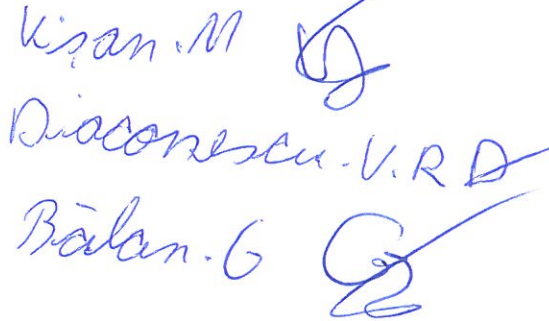 Vișan. M
Diaconescu. V. R
Bălan. G